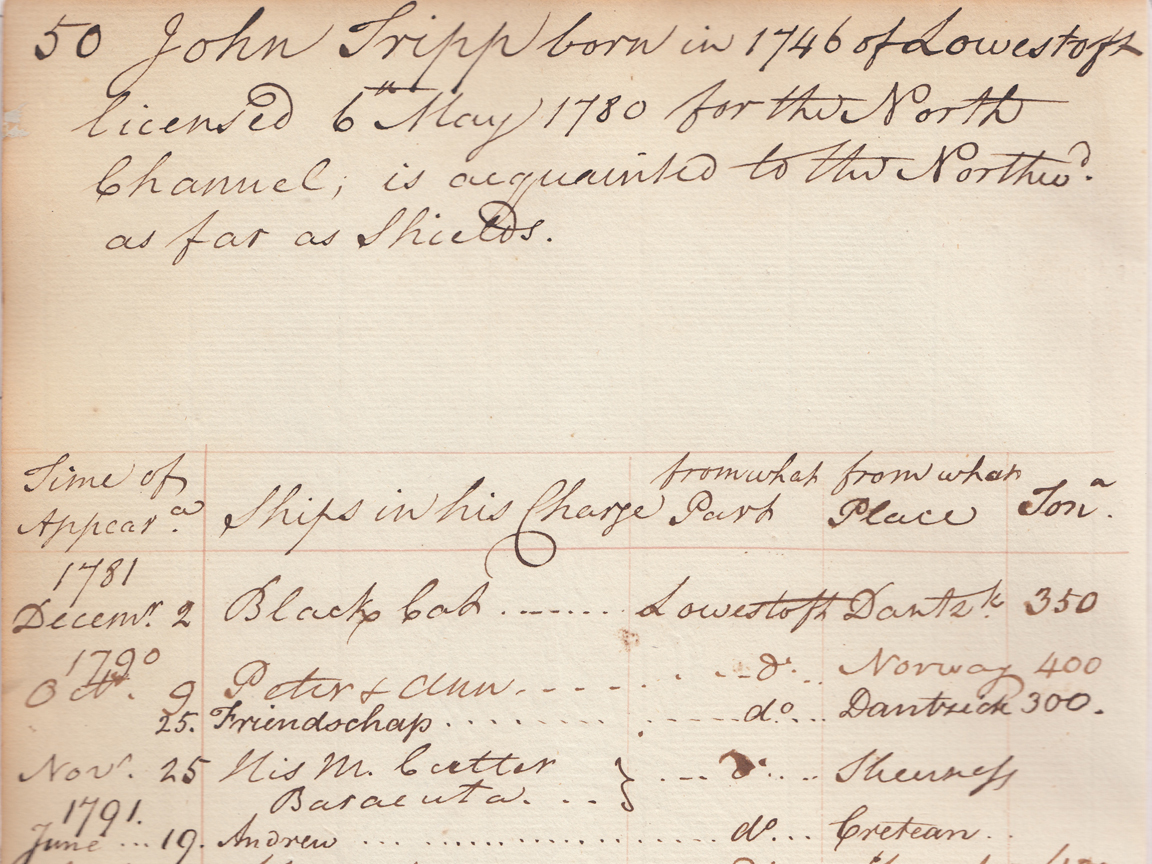 50 John Tripp born in 1746 of Lowestoft
licensed 6th May 1780 for the North
Channel; is acquainted to the Northwd.
as far as Shields.
Time of Appeara. Ships in his Charge from what Part from what Place Tona.
1781
Decemr. 2 Black Cat ....... Lowestoft Dantzk. 350
1790
Octr. 9 Peter & Ann ...... do. Norway 400
25. Friendschap ........ do. ... Dantzick 300.
Novr. 25 His M. Cutter
Baracuta. ... } .... do. ... Sheerness
1791.
June ... 19. Andrew ............... do ...